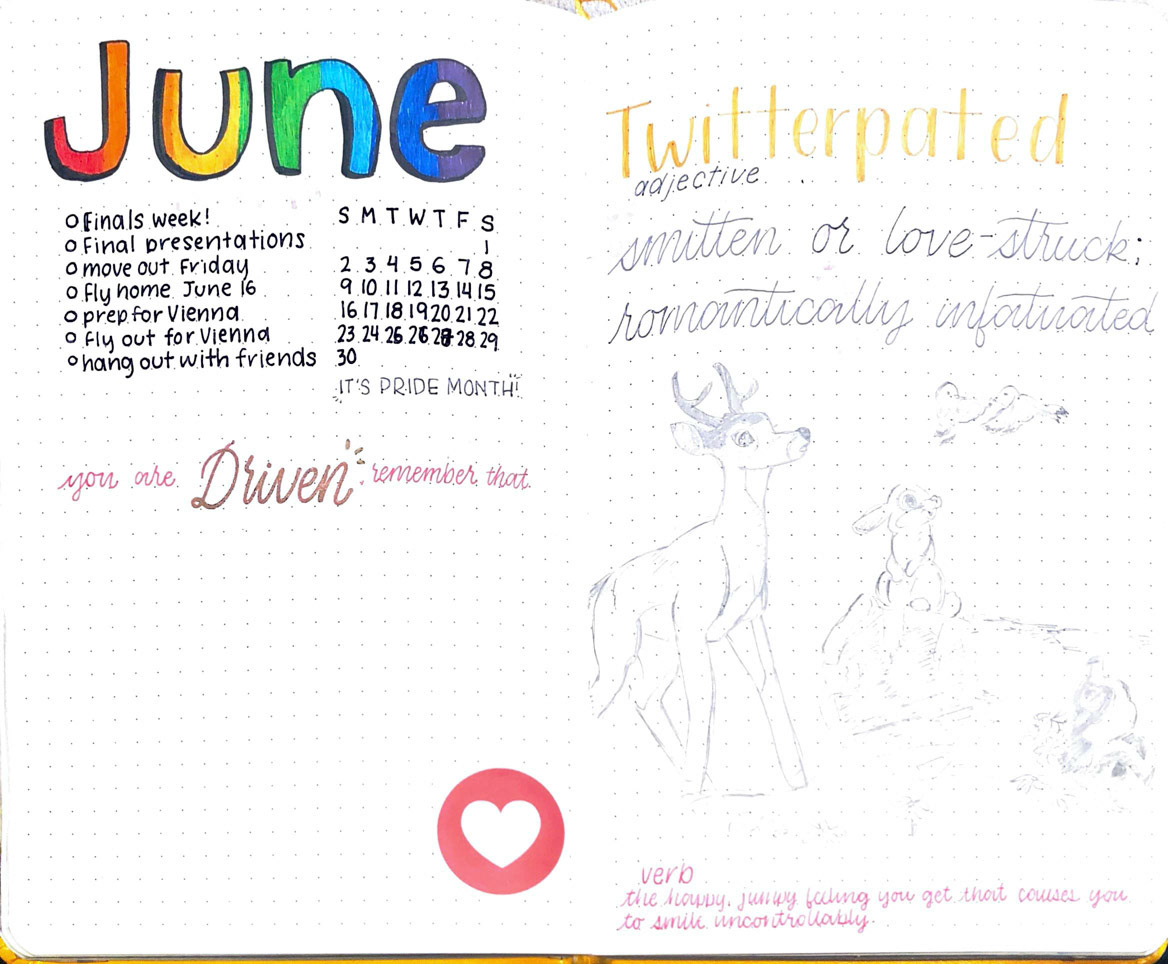 June
Finals week!
Final presentations
move out Friday
fly home June 16
prep for Vienna
fly out for Vienna
hang out with friends
S M T W T F S
1
2 3 4 5 6 7 8
9 10 11 12 13 14 15
16 17 18 19 20 21 22
23 24 25 26 27 28 29
30
IT'S PRIDE MONTH!
you are Driven remember that.
Twitterpated
adjective
smitten or love-struck;
romantically infatuated
verb
the happy, jumpy feeling you get that causes you
to smile uncontrollably.